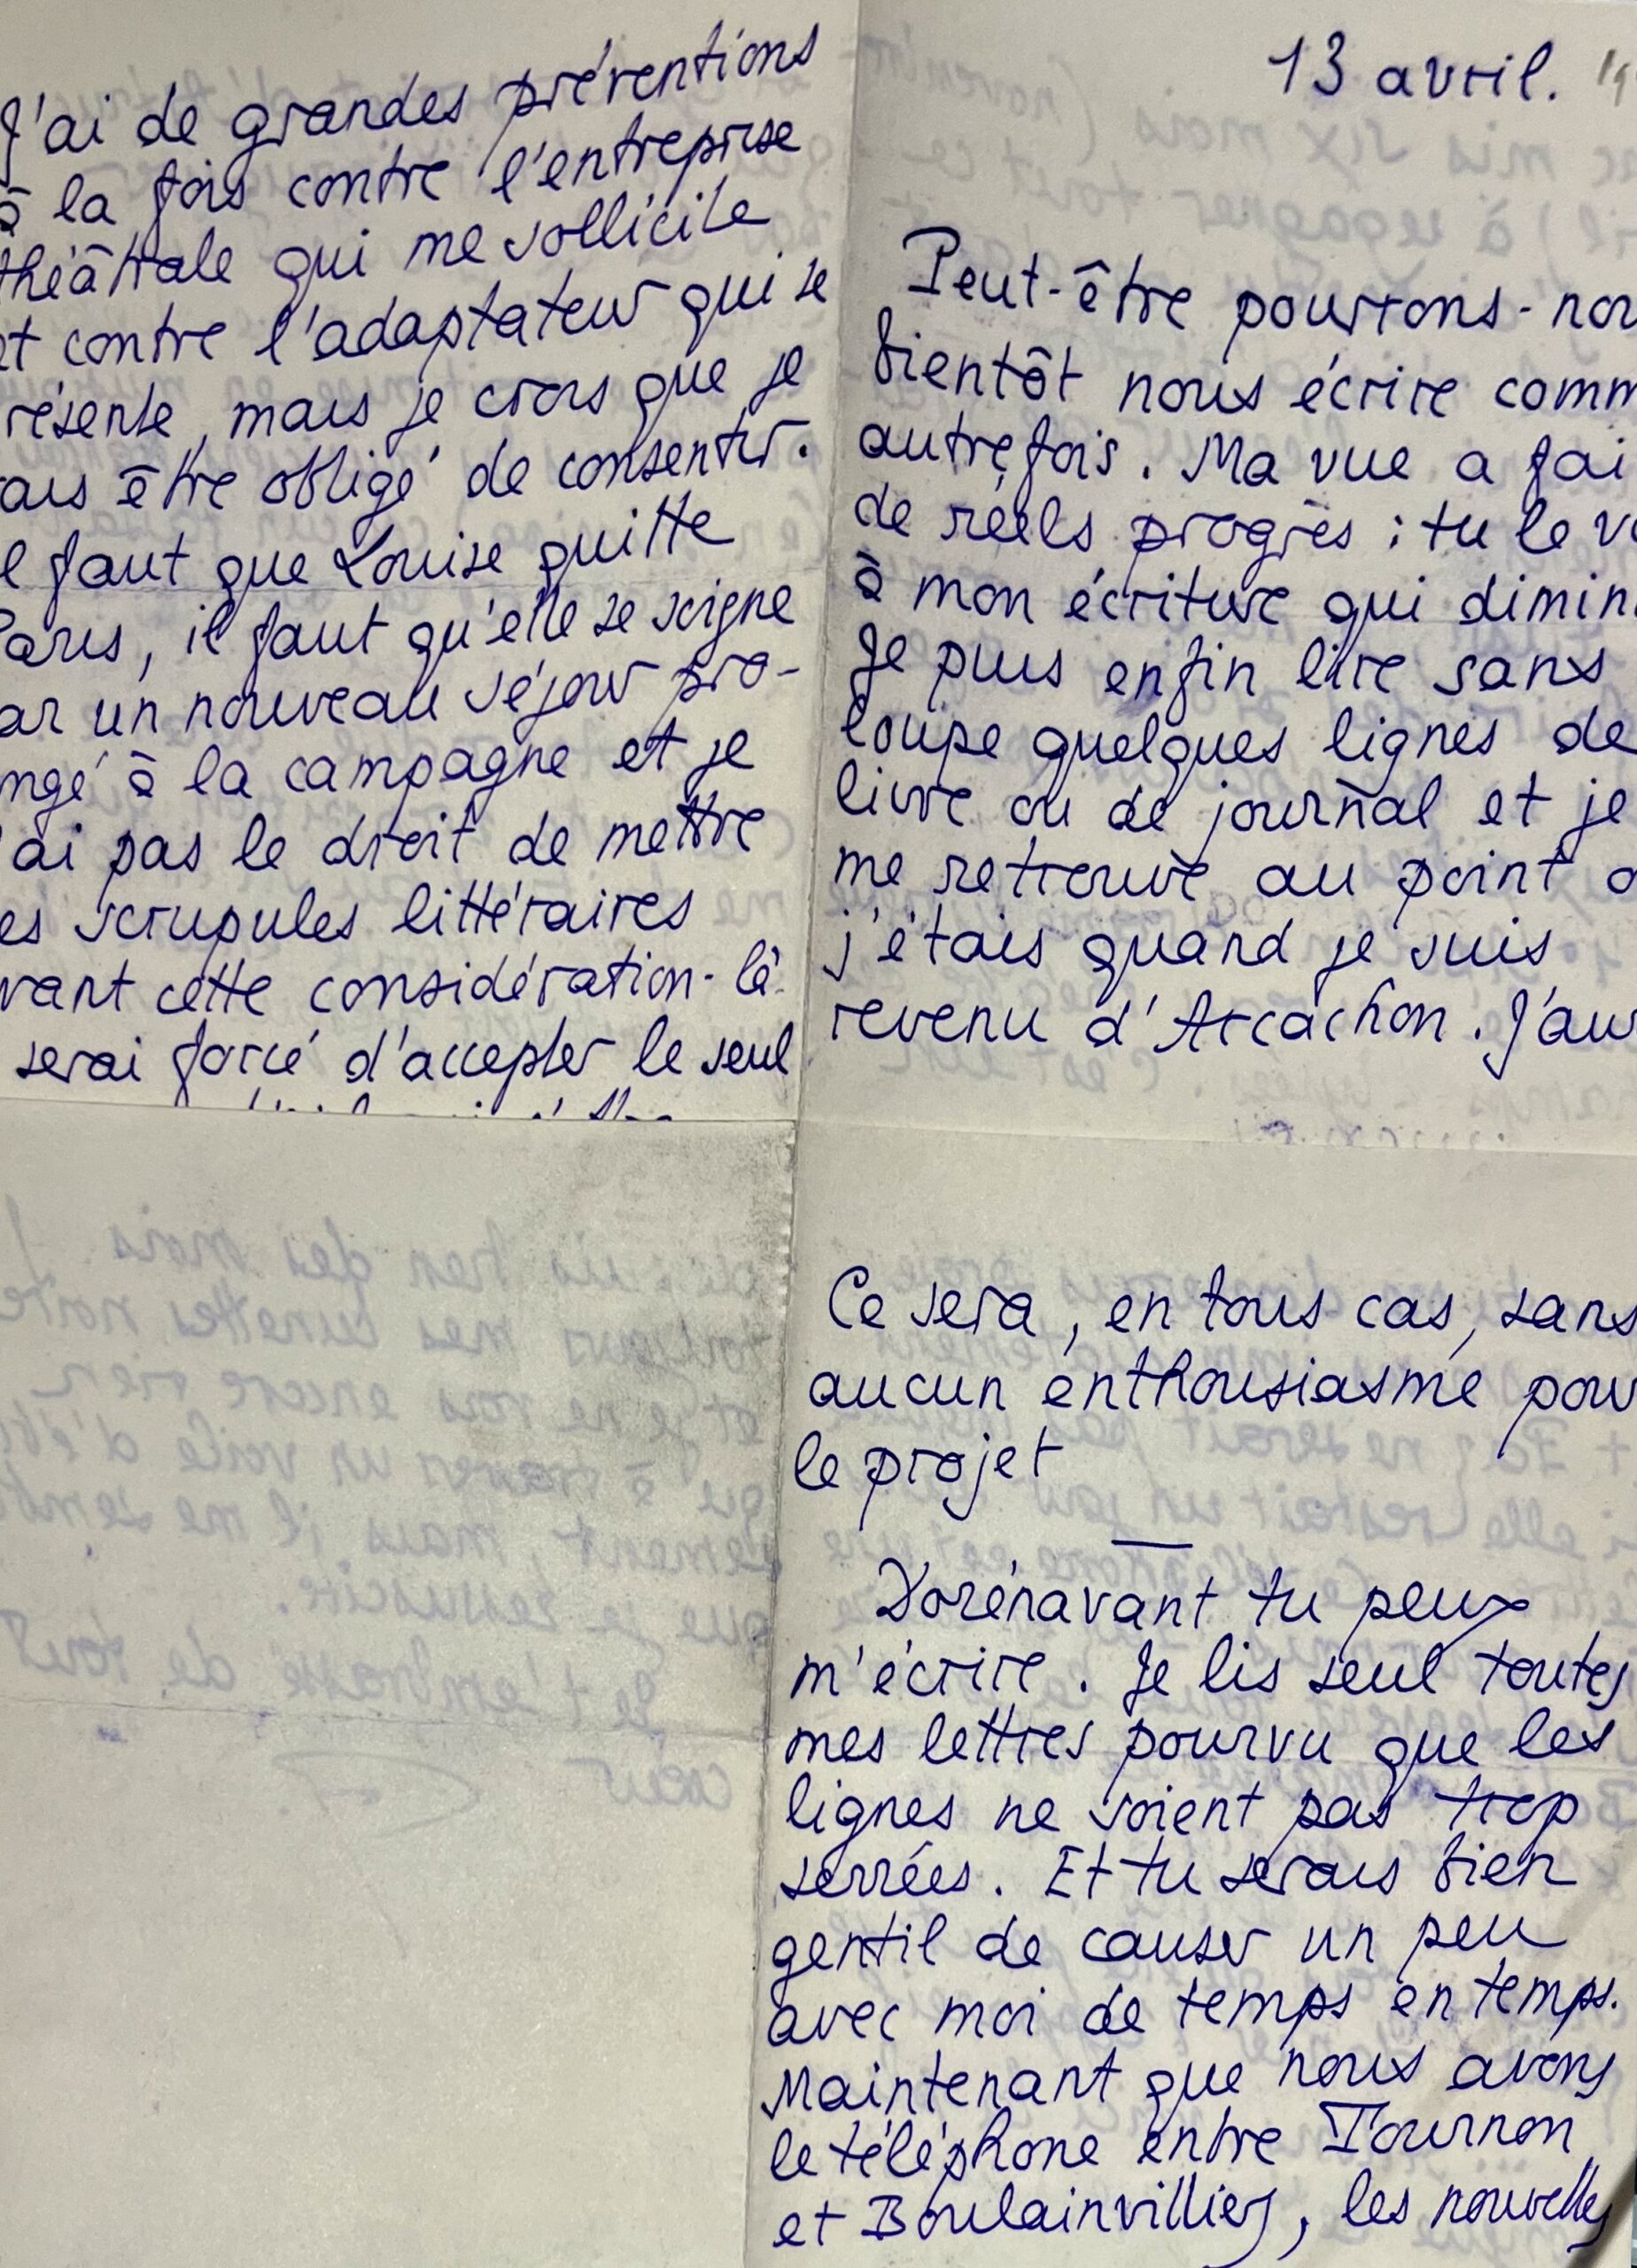 J'ai de grandes préventions
à la fois contre l'entreprise
théâtrale qui me sollicite
et contre l'adaptateur qui se
résente, mais je crois que je
ais être obligé de consentir.
l faut que Louise quitte
Paris, il faut qu'elle se soigne
ar un nouveau séjour pro-
ngé à la campagne et je
'ai pas le droit de mettre
es scrupules littéraires
vant cette considération-là.
serai forcé d'accepter le seul
13 avril.
Peut-être pourrons-nou
bientôt nous écrire comm
autrefois. Ma vue a fai
de réels progrès : tu le vo
à mon écriture qui diminu
Je puis enfin lire sans
loupe quelques lignes de
livre ou de journal et je
me retrouve au point o
j'étais quand je suis
revenu d'Arcachon. J'au
Ce sera, en tous cas, sans
aucun enthousiasme pour
le projet
—
Dorénavant tu peux
m'écrire. Je lis seul toutes
mes lettres pourvu que les
lignes ne soient pas trop
serrées. Et tu serais bien
gentil de causer un peu
avec moi de temps en temps.
Maintenant que nous avons
le téléphone entre Tournon
et Boulainvilliers, les nouvelles